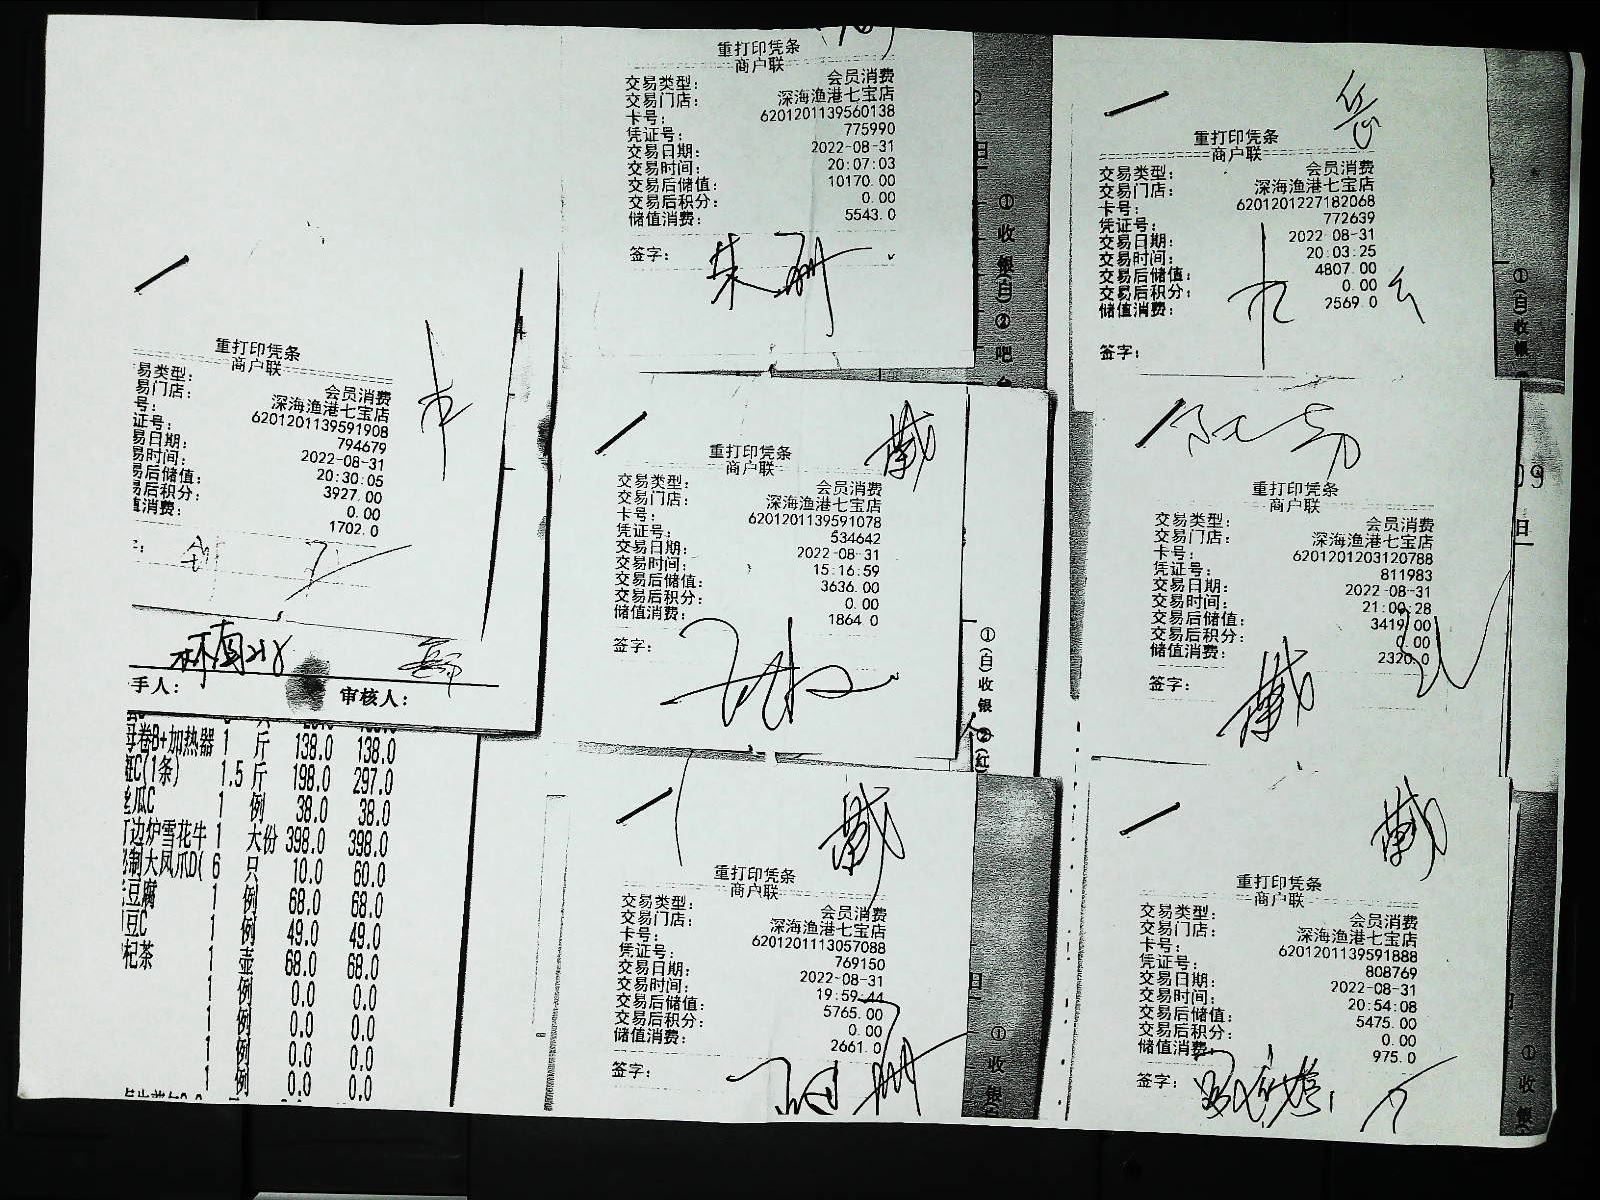 重打印凭条
商户联
易类型： 会员消费
易门店： 深海渔港七宝店
号： 6201201139591908
证号： 794679
易日期： 2022-08-31
易时间： 20:30:05
易后储值： 3927.00
易后积分： 0.00
值消费： 1702.0
手人： 审核人：
母卷B+加热器 1 斤 138.0 138.0
斑C(1条) 1.5 斤 198.0 297.0
丝瓜C 1 例 38.0 38.0
打边炉雪花牛 1 大份 398.0 398.0
制大凤爪D( 6 只 10.0 60.0
豆腐 1 例 68.0 68.0
豆C 1 例 49.0 49.0
杞茶 1 壶 68.0 68.0
1 例 0.0 0.0
1 例 0.0 0.0
1 例 0.0 0.0
1 例 0.0 0.0
重打印凭条
商户联
交易类型： 会员消费
交易门店： 深海渔港七宝店
卡号： 6201201139560138
凭证号： 775990
交易日期： 2022-08-31
交易时间： 20:07:03
交易后储值： 10170.00
交易后积分： 0.00
储值消费： 5543.0
签字：
① 收银(白) ② 吧
重打印凭条
商户联
交易类型： 会员消费
交易门店： 深海渔港七宝店
卡号： 6201201139591078
凭证号： 534642
交易日期： 2022-08-31
交易时间： 15:16:59
交易后储值： 3636.00
交易后积分： 0.00
储值消费： 1864.0
签字：
①(白)收银 ②(红)
重打印凭条
商户联
交易类型： 会员消费
交易门店： 深海渔港七宝店
卡号： 6201201113057088
凭证号： 769150
交易日期： 2022-08-31
交易时间： 19:59:44
交易后储值： 5765.00
交易后积分： 0.00
储值消费： 2661.0
签字：
① 收银(白)
重打印凭条
商户联
交易类型： 会员消费
交易门店： 深海渔港七宝店
卡号： 6201201227182068
凭证号： 772639
交易日期： 2022-08-31
交易时间： 20:03:25
交易后储值： 4807.00
交易后积分： 0.00
储值消费： 2569.0
签字：
①(白)收银
重打印凭条
商户联
交易类型： 会员消费
交易门店： 深海渔港七宝店
卡号： 6201201203120788
凭证号： 811983
交易日期： 2022-08-31
交易时间： 21:00:28
交易后储值： 3419.00
交易后积分： 0.00
储值消费： 2320.0
签字：
09
日
重打印凭条
商户联
交易类型： 会员消费
交易门店： 深海渔港七宝店
卡号： 6201201139591888
凭证号： 808769
交易日期： 2022-08-31
交易时间： 20:54:08
交易后储值： 5475.00
交易后积分： 0.00
储值消费： 975.0
签字：
① 收银